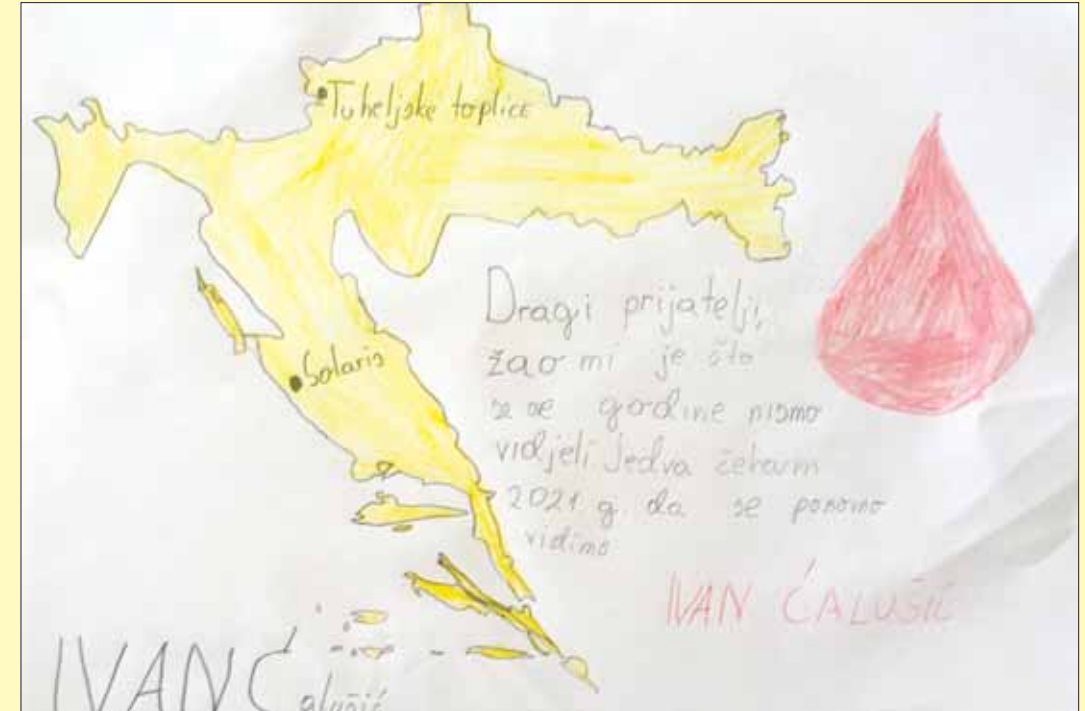 Tuheljske toplice
Solaris
Dragi prijatelji,
žao mi je što
se ove godine nismo
vidjeli Jedva čekam
2021 g da se ponovno
vidimo
IVAN ĆALUŠIĆ
IVAN Ćalušić